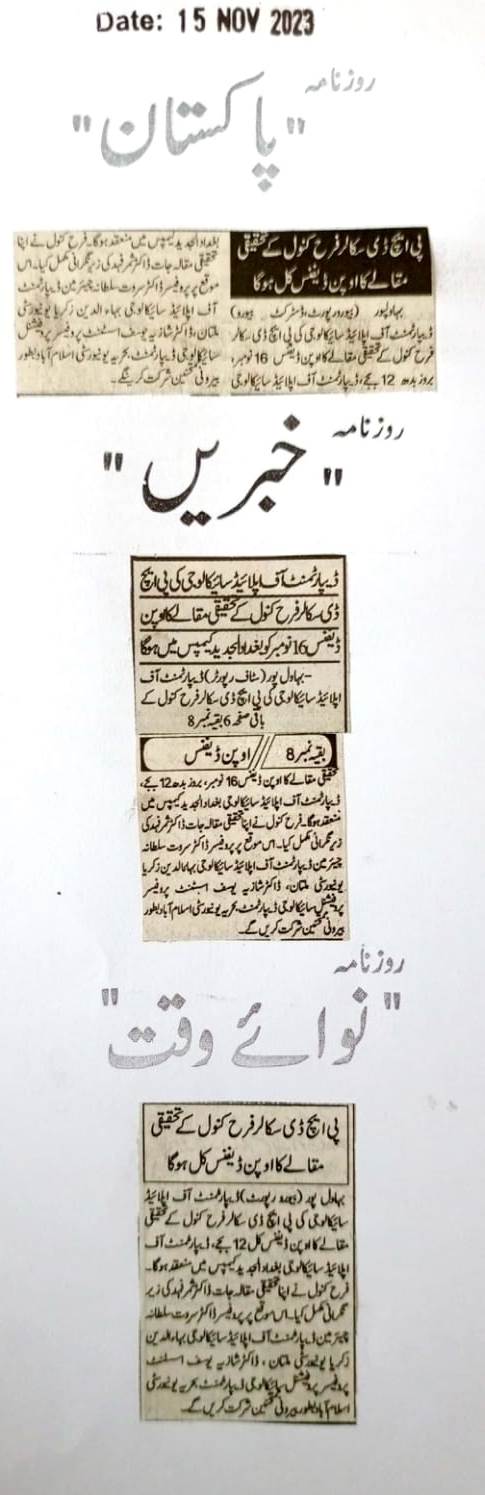 Date: 15 NOV 2023
روزنامہ
"پاکستان"
پی ایچ ڈی سکالر فرح کنول کے تحقیقی
مقالے کا اوپن ڈیفنس کل ہوگا
بہاولپور (بیورورپورٹ، ڈسٹرکٹ بیورو)
ڈیپارٹمنٹ آف اپلائیڈ سائیکالوجی کی پی ایچ ڈی سکالر
فرح کنول کے تحقیقی مقالے کا اوپن ڈیفنس 16 نومبر،
بروز بدھ 12 بجے، ڈیپارٹمنٹ آف اپلائیڈ سائیکالوجی
بغداد الجدید کیمپس میں منعقد ہوگا۔ فرح کنول نے اپنا
تحقیقی مقالہ جات ڈاکٹر ثمر فہد کی زیر نگرانی مکمل کیا۔ اس
موقع پر پروفیسر ڈاکٹر سروت سلطانہ چیئرمین ڈیپارٹمنٹ
آف اپلائیڈ سائیکالوجی بہاء الدین زکریا یونیورسٹی
ملتان، ڈاکٹر شازیہ یوسف اسسٹنٹ پروفیسر پروفیشنل
سائیکالوجی ڈیپارٹمنٹ، بحریہ یونیورسٹی اسلام آباد بطور
بیرونی ممتحن شرکت کرینگے۔
روزنامہ
"خبریں"
ڈیپارٹمنٹ آف اپلائیڈ سائیکالوجی کی پی ایچ
ڈی سکالر فرح کنول کے تحقیقی مقالے کا اوپن
ڈیفنس 16 نومبر کو بغداد الجدید کیمپس میں ہوگا
بہاول پور (سٹاف رپورٹر) ڈیپارٹمنٹ آف
اپلائیڈ سائیکالوجی کی پی ایچ ڈی سکالر فرح کنول کے
باقی صفحہ 6 بقیہ نمبر 8
بقیہ نمبر 8 // اوپن ڈیفنس
تحقیقی مقالے کا اوپن ڈیفنس 16 نومبر، بروز بدھ 12 بجے،
ڈیپارٹمنٹ آف اپلائیڈ سائیکالوجی بغداد الجدید کیمپس میں
منعقد ہوگا۔ فرح کنول نے اپنا تحقیقی مقالہ جات ڈاکٹر ثمر فہد کی
زیر نگرانی مکمل کیا۔ اس موقع پر پروفیسر ڈاکٹر سروت سلطانہ
چیئرمین ڈیپارٹمنٹ آف اپلائیڈ سائیکالوجی بہاءالدین زکریا
یونیورسٹی ملتان، ڈاکٹر شازیہ یوسف اسسٹنٹ پروفیسر
پروفیشنل سائیکالوجی ڈیپارٹمنٹ، بحریہ یونیورسٹی اسلام آباد بطور
بیرونی ممتحن شرکت کریں گے۔
روزنامہ
"نوائے وقت"
پی ایچ ڈی سکالر فرح کنول کے تحقیقی
مقالے کا اوپن ڈیفنس کل ہوگا
بہاول پور (بیورو رپورٹ) ڈیپارٹمنٹ آف اپلائیڈ
سائیکالوجی کی پی ایچ ڈی سکالر فرح کنول کے تحقیقی
مقالے کا اوپن ڈیفنس کل 12 بجے، ڈیپارٹمنٹ آف
اپلائیڈ سائیکالوجی بغداد الجدید کیمپس میں منعقد ہوگا۔
فرح کنول نے اپنا تحقیقی مقالہ جات ڈاکٹر ثمر فہد کی زیر
نگرانی مکمل کیا۔ اس موقع پر پروفیسر ڈاکٹر سروت سلطانہ
چیئرمین ڈیپارٹمنٹ آف اپلائیڈ سائیکالوجی بہاء الدین
زکریا یونیورسٹی ملتان، ڈاکٹر شازیہ یوسف اسسٹنٹ
پروفیسر پروفیشنل سائیکالوجی ڈیپارٹمنٹ بحریہ یونیورسٹی
اسلام آباد بطور بیرونی ممتحن شرکت کریں گے۔